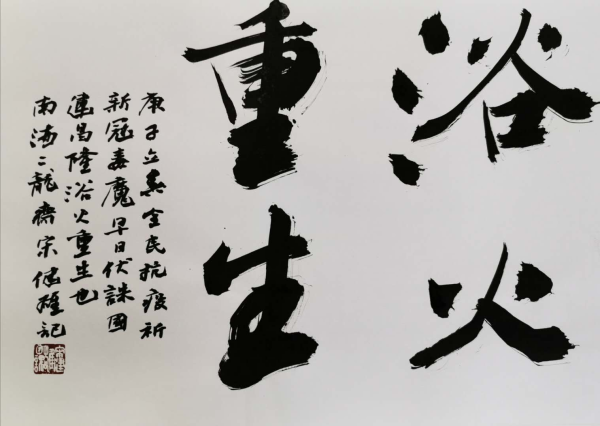 浴火
重生
庚子立春全民抗疫祈
新冠毒魔早日伏誅國
運昌隆浴火重生也
南海二龍齋宋健雄記